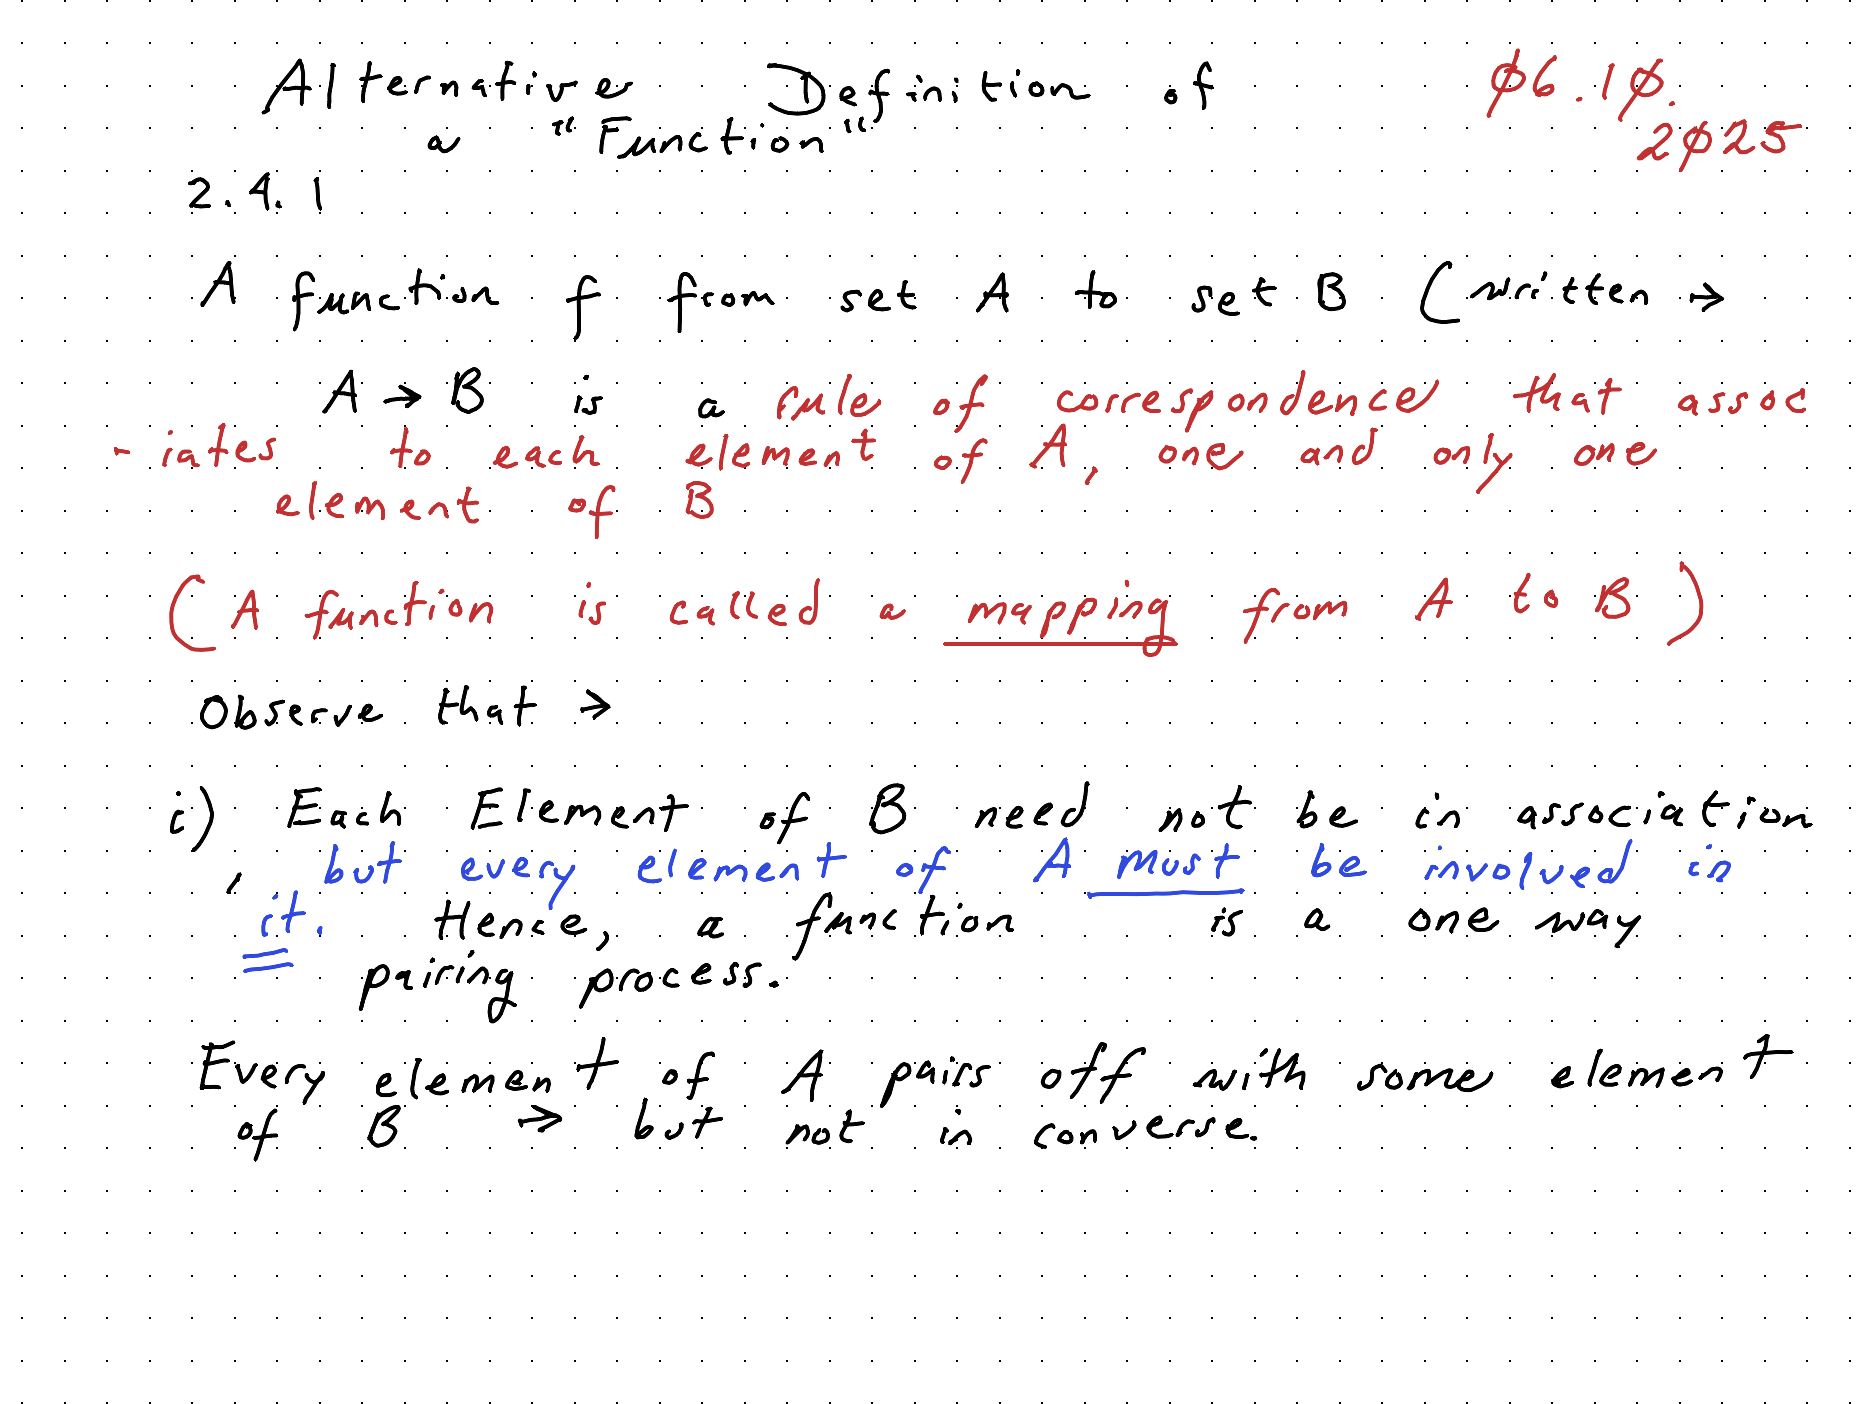 Alternative Definition of
a "Function"
ϕ6.1ϕ.
2ϕ25
2.4.1
A function f from set A to set B (written →
A → B is a rule of correspondence that assoc
- iates to each element of A, one and only one
element of B
(A function is called a mapping from A to B)
Observe that →
i) Each Element of B need not be in association
, but every element of A must be involved in
it. Hence, a function is a one way
pairing process.
Every element of A pairs off with some element
of B → but not in converse.